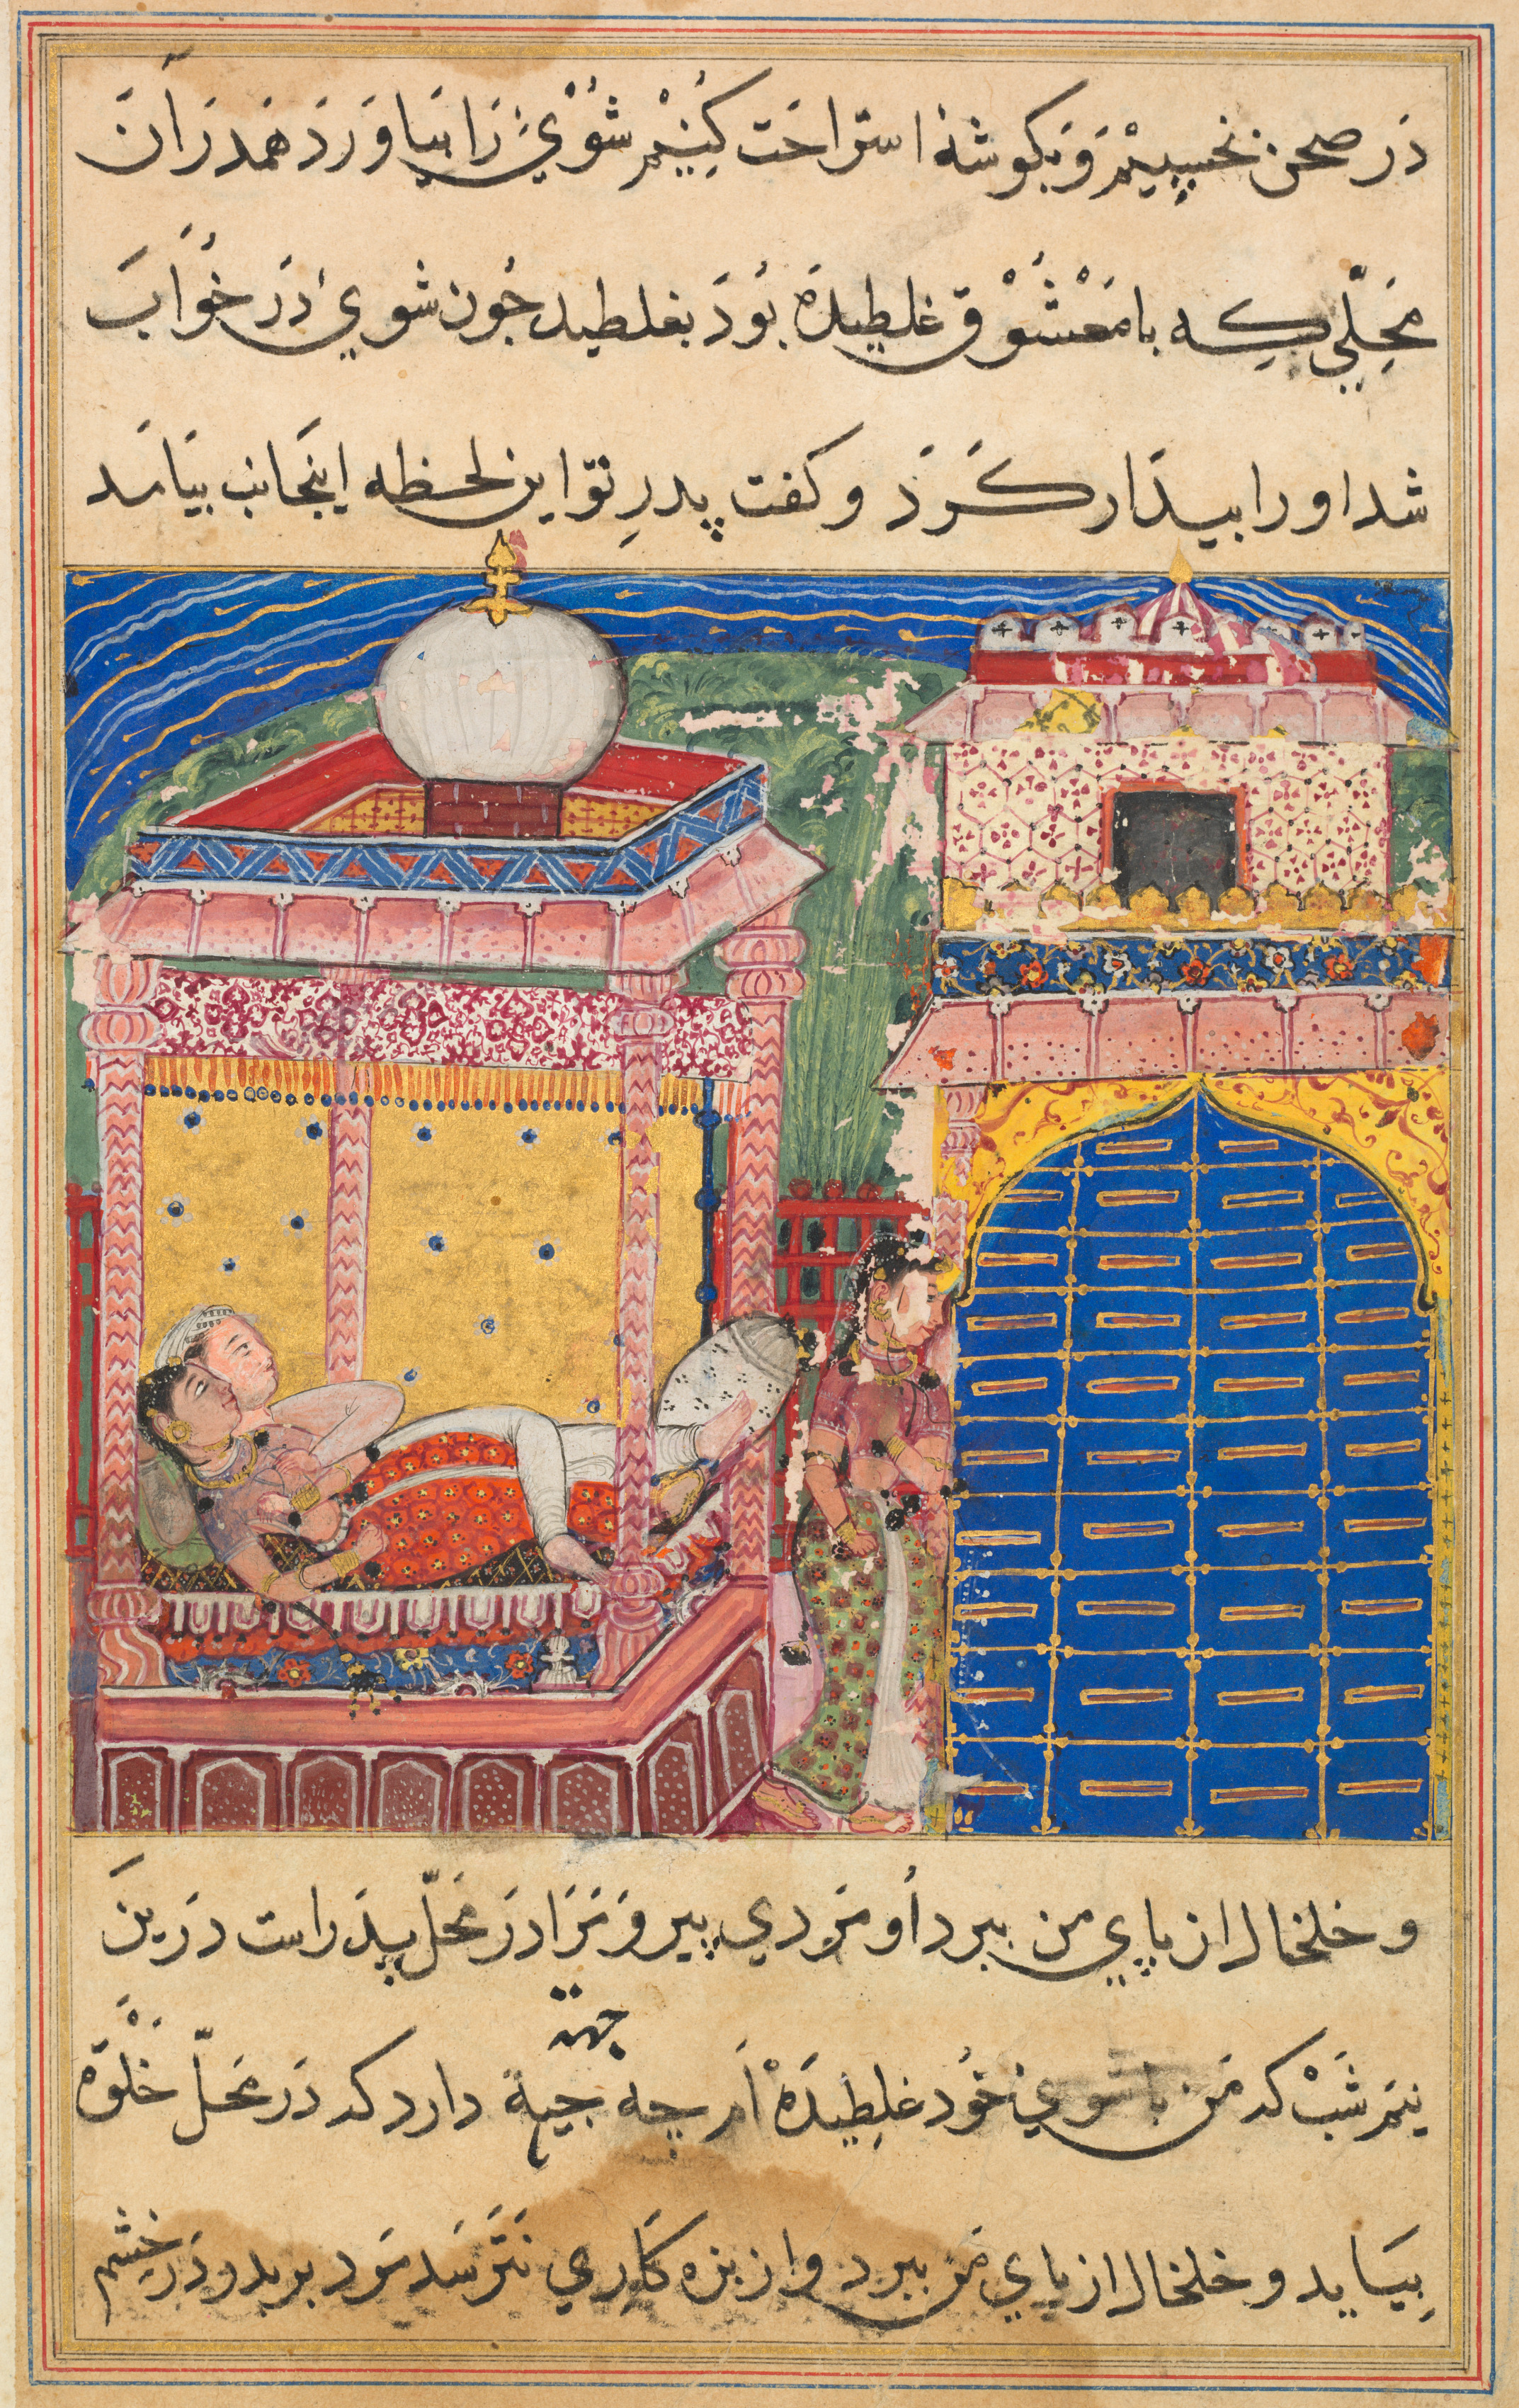 در صحن نخسپیم و بکوشهٔ استراحت کنیم شوي را بیاورد همدران
محلّي که با معشوق غلطیده بود بغلطید جون شوي در خواب
شد او را بیدار کرد و کفت پدر تو این لحظه اینجانب بیامد
و خلخال از پاي من ببرد او مردي پیر و مرا در محلّ پدر است درین
نیم شب که من با شوي خود غلطیده‌ام چه جیهة دارد که در محلّ خلوة
جهة
بیاید و خلخال از پاي من ببرد و از بزه کاري نترسد مرد بر پدر در خشم